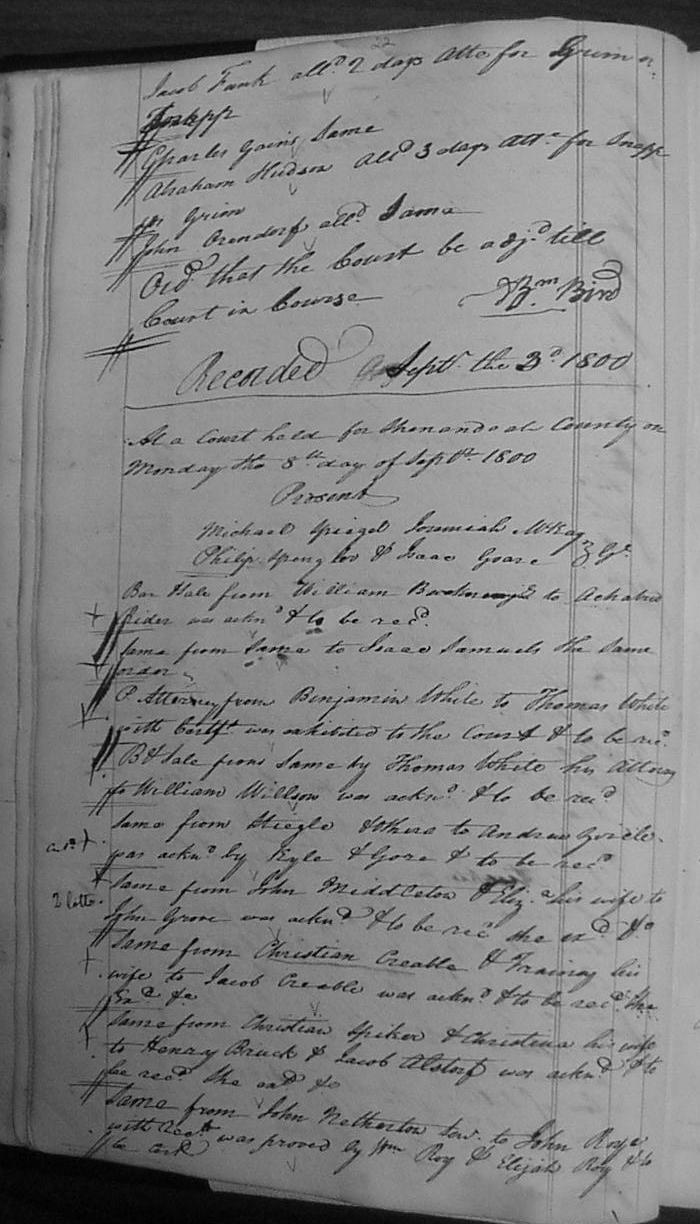 Jacob Funk all.d 2 days Atte for Grim vs
Snapp
Charles Gains Same
Abraham Hudson All.d 3 days Att.e for Snapp
vs Grim
John Orendorf all.d Same
Ord.d that the Court be adj.d till
Court in Course W.m Bird
Recorded Sept.r the 3.d 1800
At a Court held for Shenandoah County on
Monday the 8.th day of Sept.r 1800
Present
Michael Spiegel Jeremiah McKay
Philip Spengler & Isaac Goare G.t
Bar Sale from William to
Rider was ackn.d & to be rec.d
Same from Same to Isaac Samuels the Same
order
P Attorney from Benjamin White to Thomas White
with Certft was exhibited to the Court & to be rec.d
B & Sale from Same by Thomas White his Attorney
to William Willson was ackn.d & to be rec.d
Same from Steigle & others to Andrew
was ackn.d by Kyle & Gore & to be rec.d
Same from John Middleton & Eliz.a his wife to
2 lotts
John Grove was ackn.d & to be rec.d she ex.d &c
Same from Christian Creable & his
wife to Jacob Creable was ackn.d & to be rec.d She
Ex.d &c
Same from Christian Spiker & Christina his wife
to Henry Bruck & Jacob Alstorf was ackn.d & to
be rec.d She exd &c
Same from John Netherton to John Roye
with Rect was proved by Wm Roy & Elijah Roy & to
be